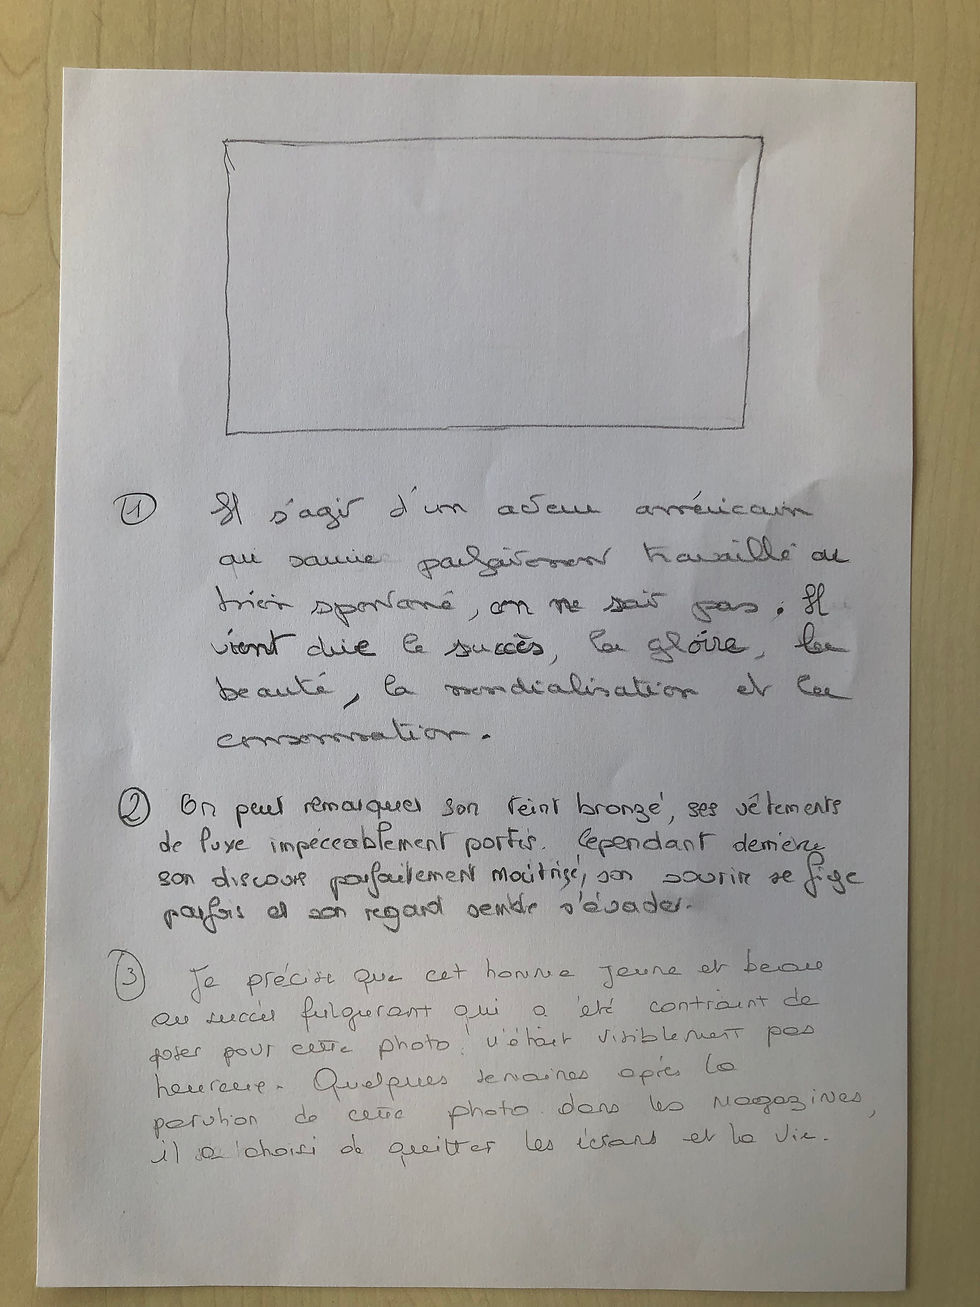 1 Il s'agit d'un acteur américain
au sourire parfaitement travaillé ou
bien spontané, on ne sait pas. Il
vient dire le succès, la gloire, la
beauté, la mondialisation et la
consommation.
2 On peut remarquer son teint bronzé, ses vêtements
de luxe impéccablement portés. Cependant derrière
son discours parfaitement maîtrisé, son sourire se fige
parfois et son regard semble s'évader.
3 Je précise que cet homme jeune et beau
au succès fulgurant qui a été contraint de
poser pour cette photo n'était visiblement pas
heureux. Quelques semaines après la
parution de cette photo dans les magazines,
il a choisi de quitter les écrans et la vie.